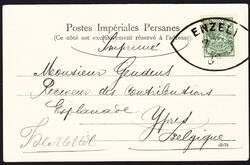 Postes Impériales Persanes
(Ce côté est exclusivement réservé à l'adresse)
ENZELI
Imprimé
Monsieur Gendens
Receveur des Contributions
Esplanade
Ypres
Belgique